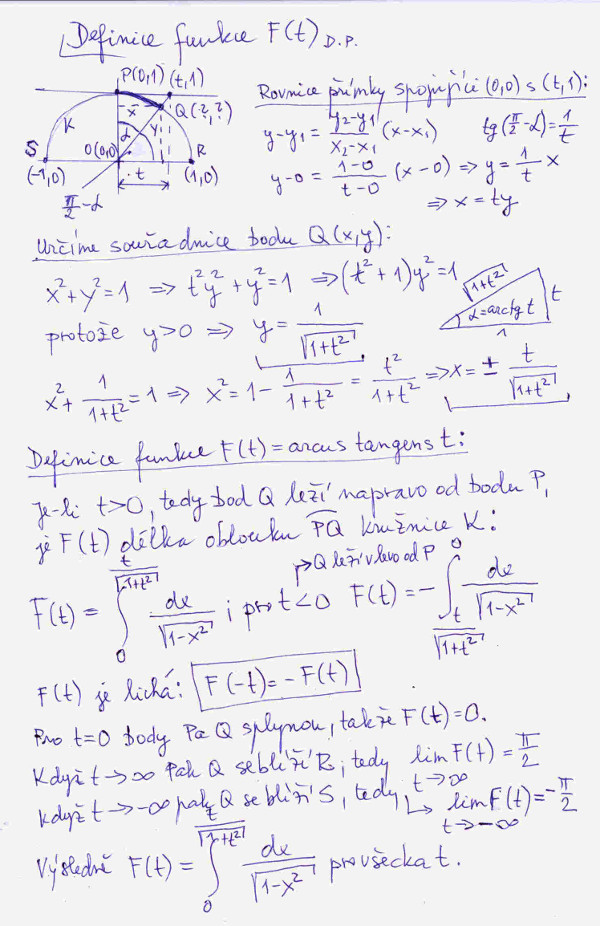 Definice funkce F(t) D.P.
P(0,1) (t,1)
Q(?,?)
K x̄ α y
S O(0,0) R
(-1,0) t (1,0)
π/2 - α
Rovnice přímky spojující (0,0) s (t,1):
y-y₁ = (y₂-y₁)/(x₂-x₁) (x-x₁) tg(π/2-α) = 1/t
y-0 = (1-0)/(t-0) (x-0) ⇒ y = 1/t x
⇒ x = ty
Určíme souřadnice bodu Q(x,y):
x²+y²=1 ⇒ t²y²+y²=1 ⇒ (t²+1)y²=1
protože y>0 ⇒ y = 1/√(1+t²)
√(1+t²) t
α=arctg t
1
x² + 1/(1+t²) = 1 ⇒ x² = 1 - 1/(1+t²) = t²/(1+t²) ⇒ x = ± t/√(1+t²)
Definice funkce F(t) = arcus tangens t:
Je-li t>0, tedy bod Q leží napravo od bodu P,
je F(t) délka oblouku PQ kružnice K:
Q leží vlevo od P
F(t) = ∫₀^(t/√(1+t²)) dx/√(1-x²) i pro t<0 F(t) = -∫_(t/√(1+t²))^0 dx/√(1-x²)
F(t) je lichá: F(-t) = -F(t)
Pro t=0 body P a Q splynou, takže F(t)=0.
Když t→∞ pak Q se blíží R, tedy lim F(t) = π/2
t→∞
Když t→-∞ pak Q se blíží S, tedy lim F(t) = -π/2
t→-∞
Výsledně F(t) = ∫₀^(t/√(1+t²)) dx/√(1-x²) pro všecka t.